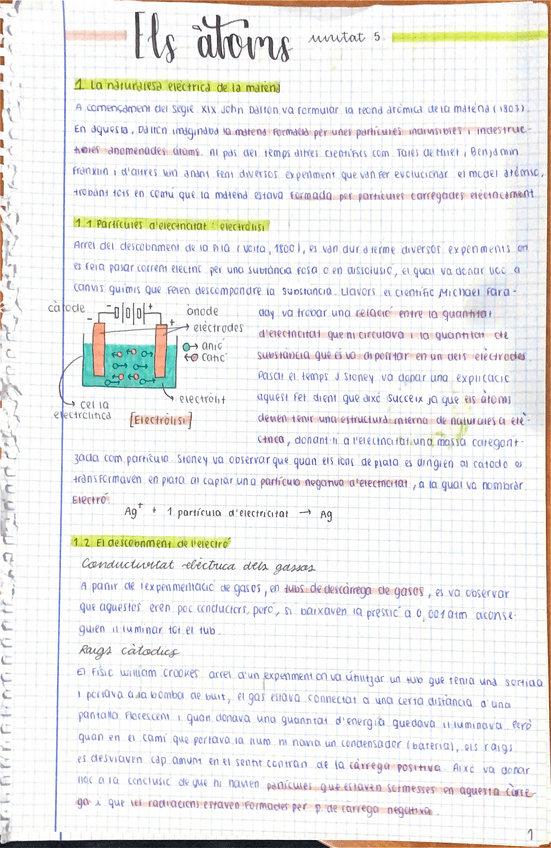 Els àtoms unitat 5
1. La naturalesa elèctrica de la matèria
A començament del segle XIX John Dalton va formular la teoria atòmica de la matèria (1803).
En aquesta, Dalton imaginava la matèria formada per unes partícules indivisibles i indestruc-
tibles anomenades àtoms. Al pas del temps altres científics com Tales de Milet, Benjamin
Franklin i d'altres van anant fent diversos experiment que van fer evolucionar el model atòmic,
trobant tots en comú que la matèria estava formada per partícules carregades elèctricament.
1.1 Partícules d'electricitat: electròlisi
Arrel del descobriment de la pila (Volta, 1800), es van dur a terme diversos experiments on
es feia passar corrent elèctric per una substància fosa o en dissolució, el qual va donar lloc a
canvis químics que feien descompondre la substància. Llavors el científic Michael Fara-
day va trobar una relació entre la quantitat
d'electricitat que hi circulava i la quantitat de
substància que es va dipositar en un dels elèctrodes
Passat el temps J Stoney va donar una explicació
aquest fet dient que això succeix ja que els àtoms
devien tenir una estructura interna de naturalesa elè-
ctrica, donant-li a l'electricitat una massa categorit-
zada com partícula. Stoney va observar que quan els ions de plata es dirigien al càtode es
transformaven en plata al captar una partícula negativa d'electricitat, a la qual va nombrar
Electró.
càtode
ànode
elèctrodes
anió
catió
electròlit
cel·la
electrolítica
[Electròlisi]
Ag⁺ + 1 partícula d'electricitat → Ag
1.2 El descobriment de l'electró
Conductivitat elèctrica dels gassos
A partir de l'experimentació de gasos, en tubs de descàrrega de gasos, es va observar
que aquestos eren poc conductors, però, si baixaven la pressió a 0,001 atm aconse-
guien il·luminar tot el tub.
Raigs càtodics
El físic William Crookes arrel d'un experiment on va utilitzar un tub que tenia una sortida
i portava a la bomba de buit, el gas estava connectat a una certa distància d'una
pantalla florescent i quan donava una quantitat d'energia quedava il·luminava. Però
quan en el camí que portava la llum hi havia un condensador (bateria), els raigs
es desviaven cap amunt en el sentit contrari de la càrrega positiva. Això va donar
lloc a la conclusió de que hi havien partícules que estaven sotmesses en aquesta càrre-
ga i que les radiacions estaven formades per p. de càrrega negativa.
1